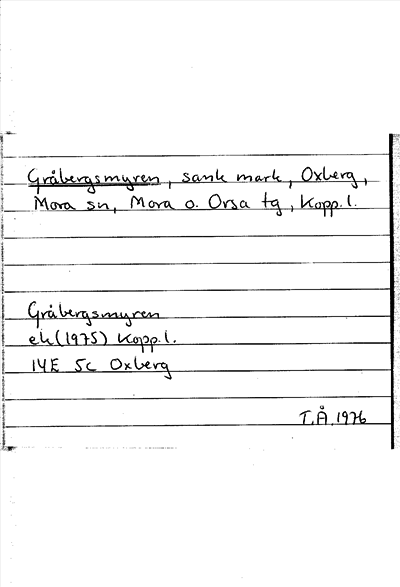 Gråbergsmyren, sank mark, Oxberg,
Mora sn, Mora o. Orsa tg, Kopp. l.
Gråbergsmyren
ek (1975) Kopp. l.
14E 5c Oxberg
T.Å. 1976